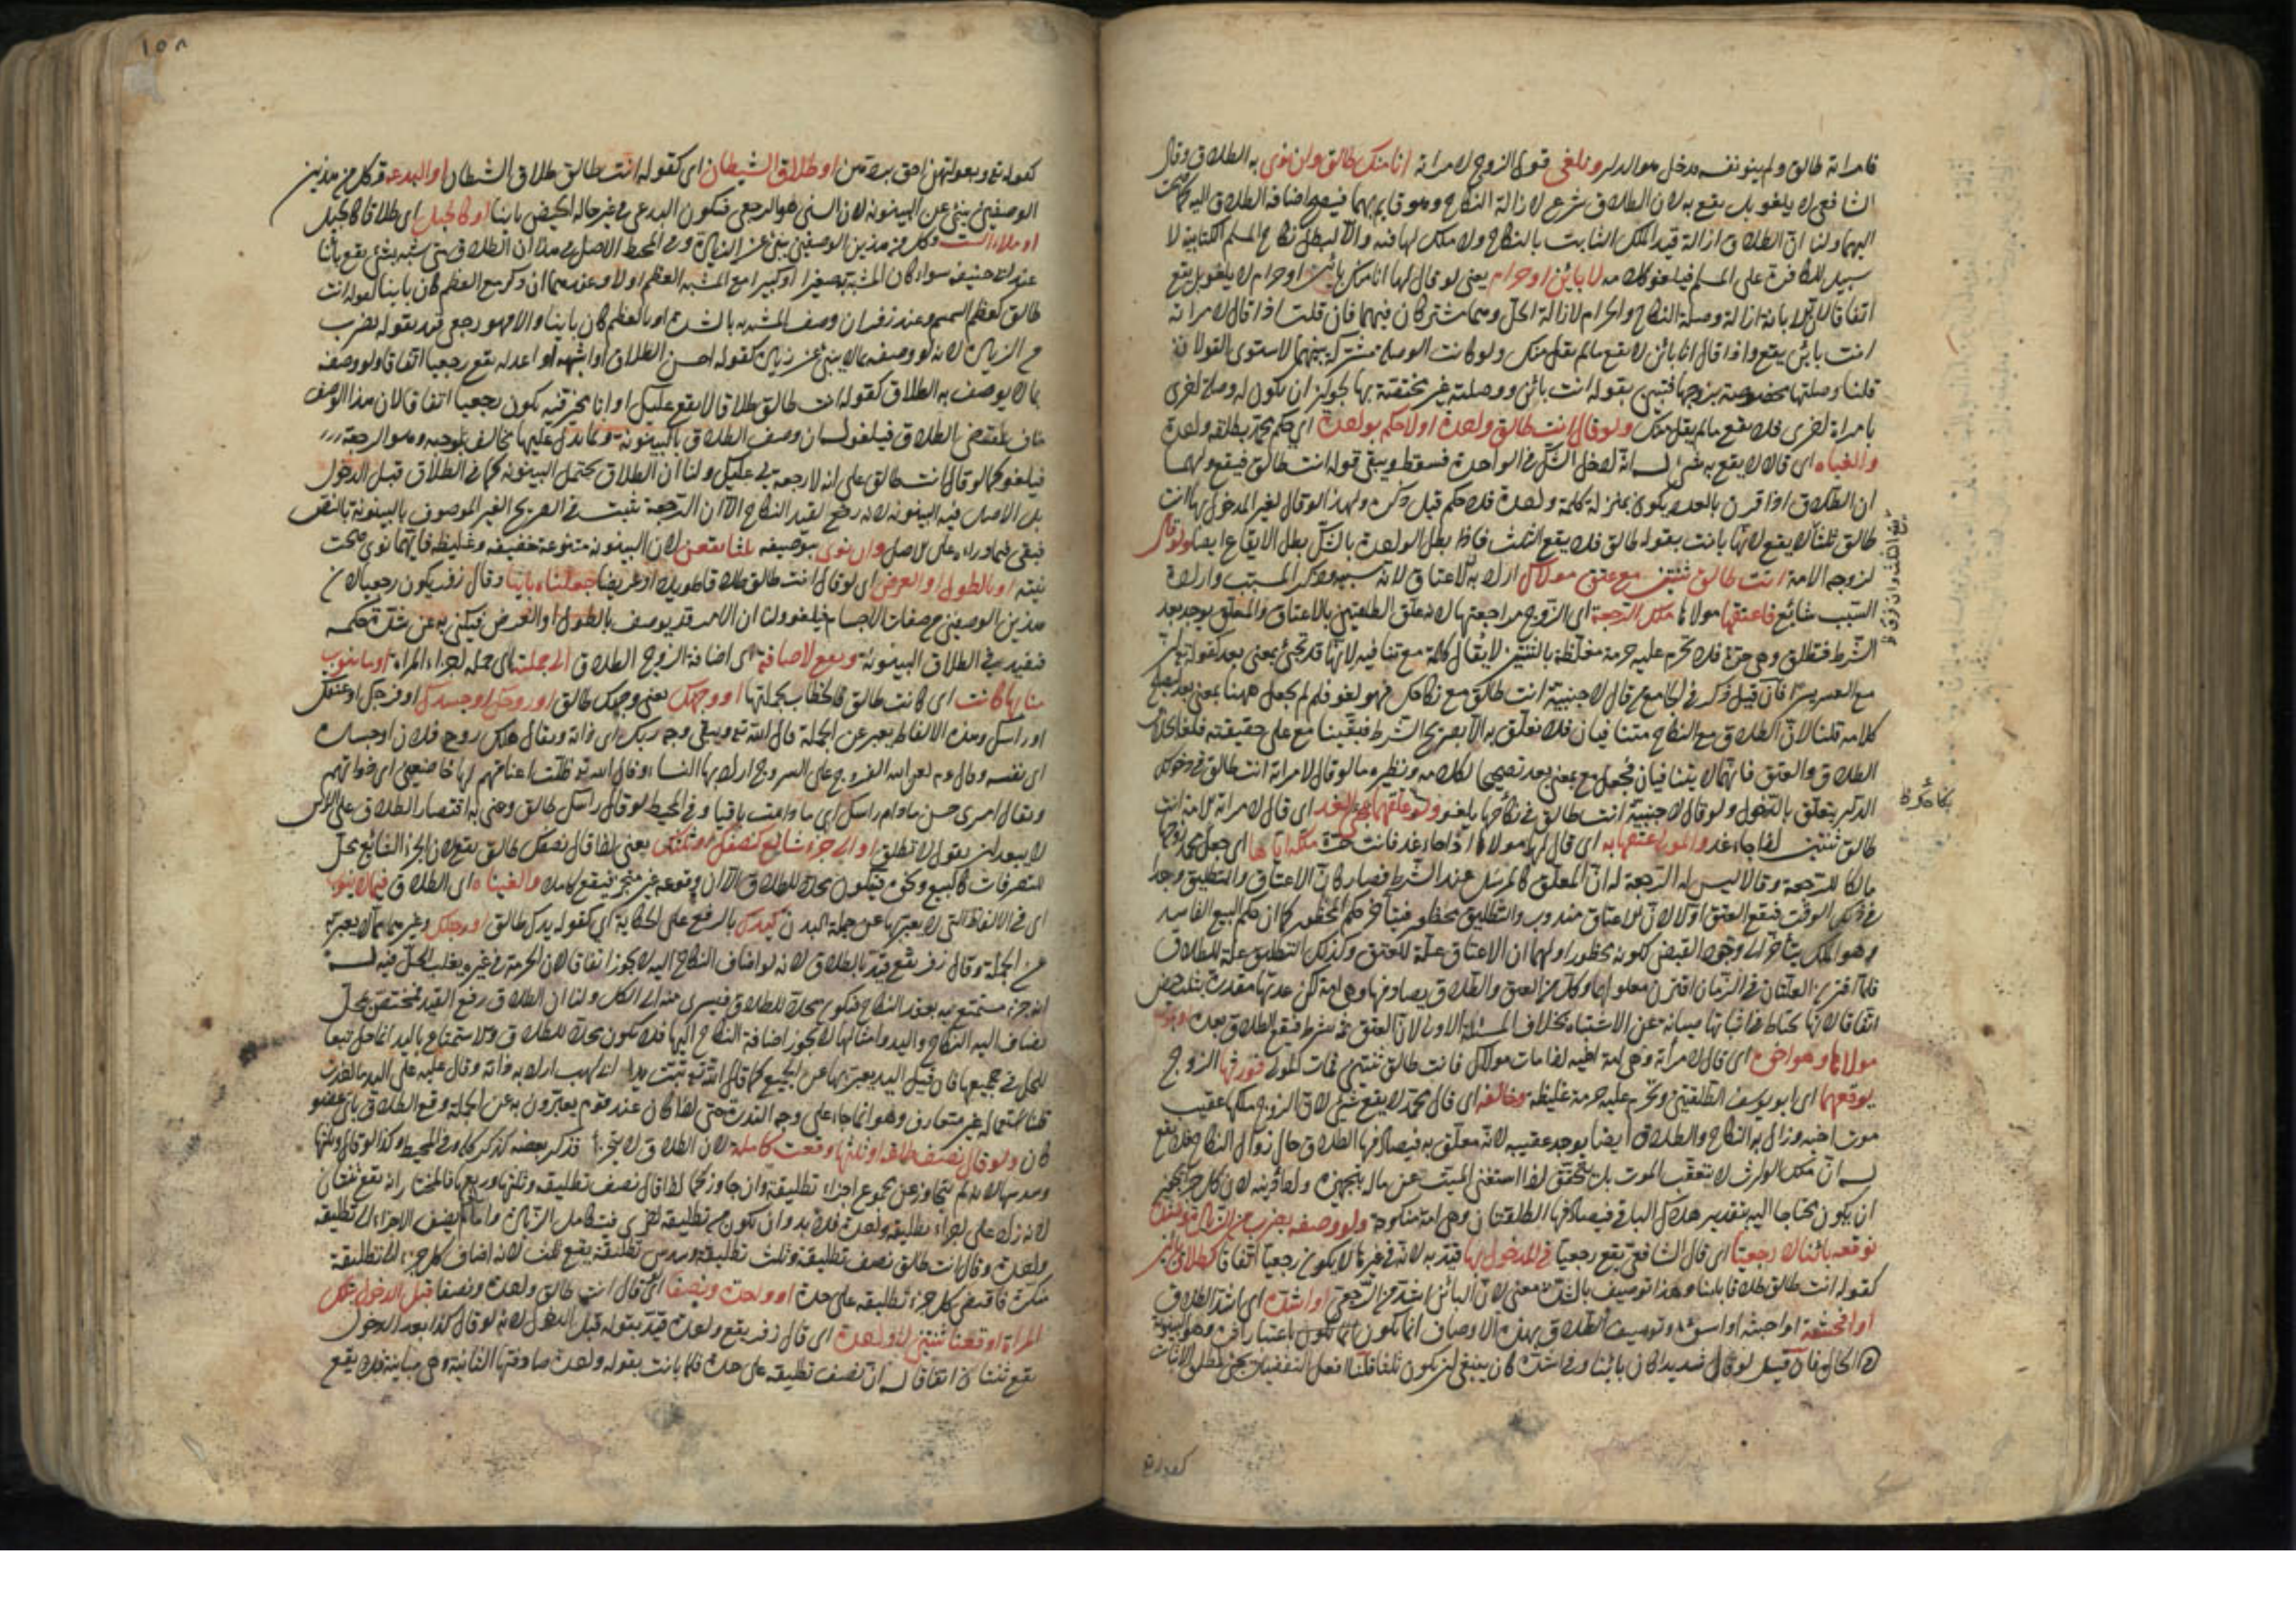 فامرأته طالق ولم ينو نفسه مدخل هو الدار ونلغي قول الزوج لامرأته انا منك طالق وان نوى به الطلاق وقال
الشافعي لا يلغو بل يقع به لان الطلاق شرع لازالة النكاح وهو قايم بهما فيصح اضافة الطلاق اليه كما صحت
اليهما ولنا ان الطلاق ازالة قيد الملك الثابت بالنكاح ولا ملك لها فيه والا لبطل نكاح المسلم الكتابية اذ لا
سبيل للكافرة على المسلم فيلغو كلامه لا بائن او حرام يعني لو قال لها انا منك بائن او حرام لا يلغو بل يقع
اتفاقا لان الابانة ازالة وصلة النكاح والحرام لازالة الحل وهما مشتركان فيهما فان قلت اذا قال لامرأته
انت بائن يقع واذا قال انا بائن لا يقع ما لم يقل منك ولو كانت الوصلة مشتركة بينهما لاستوى القولان
قلنا وصلتها مختصة بزوجها فتبين بقوله انت بائن ووصلته غير مختصة بها لجواز ان يكون له وصلة اخرى
بامرأة اخرى فلا يقع ما لم يقل منك ولو قال انت طالق واحدة او لا حكم بواحدة اي حكم محمد بطلقة واحدة
والغياه اي قالا لا يقع به شئ له انه ادخل الشك في الواحدة فسقط ويبقى قوله انت طالق فيقع ولهما
ان الطلاق اذا قرن بالعدد يكون بمنزلة كلمة واحدة فلا حكم قبل ذكره ولهذا لو قال لغير المدخول بها انت
طالق ثلثا لا يقع لانها بانت بقوله طالق فلا يقع الثلث فاذا بطل الواحدة بالشك بطل الايقاع ايضا ولو قال
لزوجه الامة انت طالق ثنتين مع عتق مولاك اراد به الاعتاق لانه سببه وذكر المسبب وارادة
السبب شائع فاعتقها مولاها ملك الرجعة اي الزوج مراجعتها لانه علق الطلقتين بالاعتاق والمعلق يوجد بعد
الشرط فتطلق وهي حرة فلا تحرم عليه حرمة مغلظة بالثنتين لا يقال كلمة مع تنافيه لانها قد تجئ بمعنى بعد كقوله تعالى ان
مع العسر يسرا فان قيل ذكر في الجامع من قال لاجنبية انت طالق مع نكاحك فهو لغو فلم لم يجعل ههنا بمعنى بعد
كلامه قلنا لان الطلاق مع النكاح متنافيان فلا تعلق به الا بصريح الشرط فبقينا مع على حقيقته فلغا بخلاف
الطلاق والعتق فانهما لا يتنافيان فجعل مع بمعنى بعد تصحيحا لكلامه ونظيره ما لو قال لامرأته انت طالق في دخولك
الدار يتعلق بالدخول ولو قال لاجنبية انت طالق في نكاحها يلغو ولو علقهما بمجئ الغد اي قال لامرأته الامة انت
طالق ثنتين اذا جاء غد والمولى عتقها به اي قال لها مولاها اذا جاء غد فانت حرة ملكه اياها اي جعل محمد زوجها
مالكا للرجعة وقالا ليس له الرجعة له ان المعلق كالمرسل عند الشرط فصار كان الاعتاق والتطليق وجدا
في ذلك الوقت فيقع العتق اولا لان الاعتاق مندوب والتطليق محظور فيتأخر حكم المحظور كما ان حكم البيع الفاسد
وهو الملك يتأخر الى وجود القبض لكونه محظورا ولهما ان الاعتاق علة للعتق وكذلك التطليق علة للطلاق
فلما اقترن العلتان في الزمان اقترن معلولاهما وكل من العتق والطلاق يصادفها وهي امة لكن عدتها مقدرة بثلث حيض
اتفاقا لانها يحتاط في اثباتها صيانة عن الاشتباه بخلاف المسئلة الاولى لان العتق ثمه شرط فيقع الطلاق بعده
مولاها وهو اخوه اي قال لامرأته وهي امة اخيه اذا مات مولاك فانت طالق ثنتين فمات المولى فورثها الزوج
يوقعهما اي ابو يوسف الطلقتين وتحرم عليه حرمة غليظة وخالفه اي قال محمد لا يقع شئ لان الزوج ملكها عقيب
موت اخيه وزال به النكاح والطلاق ايضا يوجد عقيبه لانه معلق به فيصادفها الطلاق حال زوال النكاح فلا يقع
له ان ملك الوارث لا يتعقب الموت بل يتحقق اذا استغنى الميت عن ماله بتجهيزه
ان يكون محتاجا اليه بتقدير هلاك الباقي فيصادفها الطلقتان وهي امة منكوحة ولو وصفه بضرب من الزيادة
نوقعه بائنا لا رجعيا اي قال الشافعي يقع رجعيا في المدخول بها قيد به لانه في غيرها لا يكون رجعيا اتفاقا كطلاق بائن
كقوله انت طالق طلاقا بائنا وهذا توصيف بالشدة معنى لان البائن اشد من الرجعي او اشده اي اشد الطلاق
او افحشه او اخبثه او اسوئه وتوصيف الطلاق بهذه الاوصاف انما يكون باعتبار اثره وهو البينونة
في الحال فان قيل لو قال شديدا كان بائنا وفي اشده كان ينبغي ان يكون ثلثا قلنا افعل التفضيل يجئ لمطلق الاثبات
كقوله تع
يقع الثلث وان
نكاحك ظ
١٥٨
كقوله تع وبعولتهن احق بردهن او طلاق الشيطان اي كقوله انت طالق طلاق الشيطان او البدعة فكل من هذين
الوصفين ينبئ عن البينونة لان السني هو الرجعي فيكون البدعي في غير حالة الحيض بائنا او كالجبل اي طلاقا كالجبل
او ملاء البيت وكل من هذين الوصفين ينبئ عن الزيادة وفي المحيط الاصل في هذا ان الطلاق متى شبه بشئ يقع بائنا
عند ابي حنيفة سواء كان المشبه به صغيرا او كبيرا مع المشبه العظم او لا وعندهما ان ذكر مع العظم كان بائنا كقوله انت
طالق كعظم السمسم وعند زفر ان وصف المشبه به بالشدة او بالعظم كان بائنا والا فهو رجعي قيد بقوله بضرب
من الزيادة لانه لو وصفه بما لا ينبئ عن زيادة كقوله احسن الطلاق او اشبهه او اعدله يقع رجعيا اتفاقا ولو وصفه
بما لا يوصف به الطلاق كقوله انت طالق طلاقا لا يقع عليك او انا بخير فيه يكون رجعيا اتفاقا لان هذا الوصف
مناف لمقتضى الطلاق فيلغو له ان وصف الطلاق بالبينونة وبما يدل عليها مخالف لموجبه وهو الرجعة
فيلغو كما لو قال انت طالق على انه لا رجعة لي عليك ولنا ان الطلاق يحتمل البينونة كما في الطلاق قبل الدخول
بل الاصل فيه البينونة لانه رفع لقيد النكاح الا ان الرجعة تثبت في الصريح الغير الموصوف بالبينونة بالنص
فبقي فيما وراءه على الاصل وان نوى بتوصيفه ثلثا يقعن لان البينونة متنوعة خفيفة وغليظة فايهما نوى صحت
نيته او بالطول او العرض اي لو قال انت طالق طلاقا طويلا او عريضا جعلناه بائنا وقال زفر يكون رجعيا لان
هذين الوصفين من صفات الاجسام فيلغو ولنا ان الامر قد يوصف بالطول او العرض فيكنى به عن شدة حكمه
فيفيد في الطلاق البينونة ويقع لاضافة اي اضافة الزوج الطلاق الى جملتها اي جملة اجزاء المرأة او ما ينوب
منابها كانت اي كانت طالق فالخطاب بجملتها او وجهك يعني وجهك طالق او روحك او جسدك او فرجك او عنقك
او رأسك وهذه الالفاظ يعبر عن الجملة قال الله تع ويبقى وجه ربك اي ذاته ويقال هلك روح فلان او جسده
اي نفسه وقال ءم لعن الله الفروج على السروج اراد بها النساء وقال الله تع فظلت اعناقهم لها خاضعين اي ذواتهم
ويقال امري حسن ما دام رأسك اي ما دامت باقيا وفي المحيط لو قال رأسك طالق وعنى به اقتصار الطلاق على الرأس
لا يبعد ان يقول لا تطلق او الى جزء شائع كنصفك او ثلثك يعني اذا قال نصفك طالق يقع لان الجزء الشائع محل
للتصرفات كالبيع ونحوه فيكون محلا للطلاق الا ان وقوعه غير متجز فيقع كاملا والغيناه اي الطلاق فيما لا ينوب
اي في الالفاظ التي لا يعبر بها عن جملة البدن كيدك بالرفع على الحكاية اي كقوله يدك طالق او رجلك وغيرهما مما لا يعبر به
عن الجملة وقال زفر يقع قيد بالطلاق لانه لو اضاف النكاح اليه لا يجوز اتفاقا لان الحرمة في غيره يغلب الحل فيه له
انه جزء مستمتع به بعقد النكاح فيكون محلا للطلاق فيسري منه الى الكل ولنا ان الطلاق رفع القيد فيختص بمحل
يضاف اليه النكاح واليد وامثالها لا يجوز اضافة النكاح اليها فلا يكون محلا للطلاق والاستمتاع باليد انما حل تبعا
للحل في جميعها فان قيل اليد يعبر بها عن الجميع كما قال الله تع تبت يدا ابي لهب اراد به ذاته وقال عليه على اليد ما اخذت
قلنا استعماله غير متعارف وهو انما جاء على وجه الندرة حتى اذا كان عند قوم يعبرون به عن الجملة وقع الطلاق باي عضو
كان ولو قال نصف طلقة او ثلثها وقعت كاملة لان الطلاق لا يتجزأ فذكر بعضه كذكر كله وفي المحيط وكذا لو قال وثلثها
وسدسها لانه لم يتجاوز عن مجموع اجزاء تطليقة وان جاوز كما اذا قال نصف تطليقة وثلثها وربعها فالمختار انه يقع ثنتان
لانه زاد على اجزاء تطليقة واحدة فلا بد وان يكون من تطليقة اخرى فيتكامل الزيادة واما لم يضف الاجزاء الى تطليقة
واحدة وقال انت طالق نصف تطليقة وثلث تطليقة وسدس تطليقة يقع ثلث لانه اضاف كل جزء الى تطليقة
منكرة فاقتضى كل جزء تطليقة على حدة او واحدة ونصفا اي قال انت طالق واحدة ونصفا قبل الدخول بتلك
المرأة اوقعنا ثنتين لا واحدة اي قال زفر يقع واحدة قيد بقوله قبل الدخول لانه لو قال كذا بعد الدخول
يقع ثنتان اتفاقا له ان نصف تطليقة على حدة فلما بانت بقوله واحدة صادفتها الثانية وهي مباينة فلا يقع